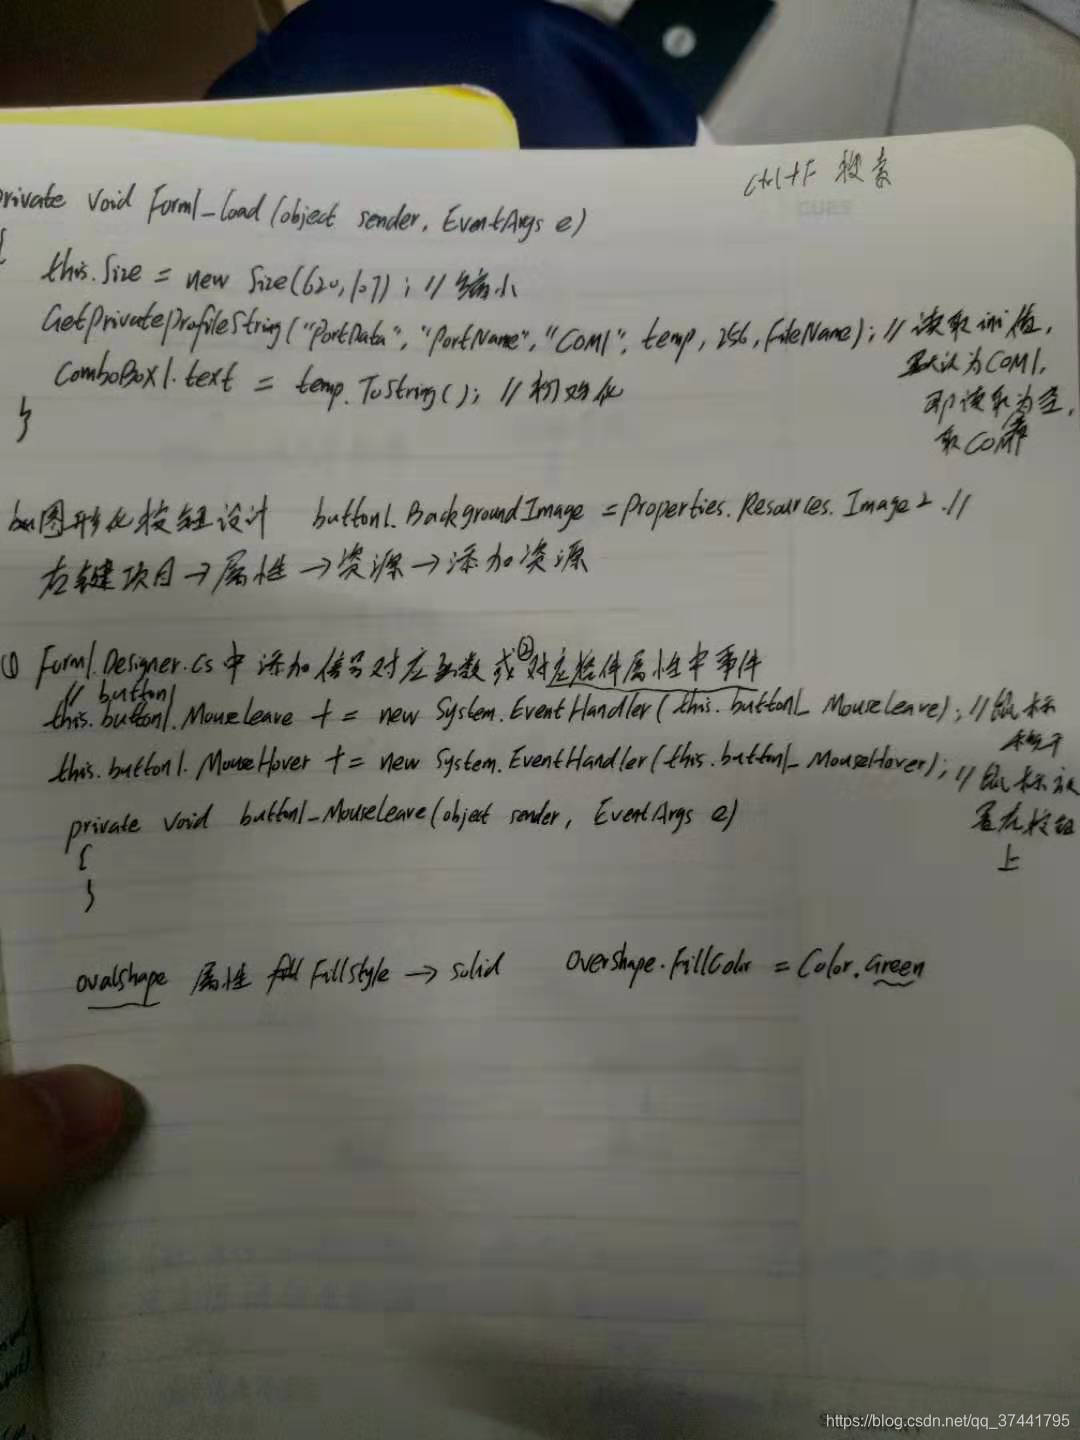 Ctrl+F 搜索
CUES
private void Form1_Load(object sender, EventArgs e)
{
this.Size = new Size(620,107); //缩小
GetPrivateProfileString("PortData", "PortName", "COM1", temp, 256, FileName); //读取ini值,
默认为COM1,
即读取为空,
取COM
ComboBox1.text = temp.ToString(); //初始化
}
图形化按钮设计 button1.BackgroundImage = Properties.Resources.Image2. //
右键项目→属性→资源→添加资源
① Form1.Designer.cs中添加信号对应函数或②对应控件属性中事件
// button1
this.button1.MouseLeave += new System.EventHandler(this.button1_MouseLeave); //鼠标
离开
this.button1.MouseHover += new System.EventHandler(this.button1_MouseHover); //鼠标放
置在按钮
上
private void button1_MouseLeave(object sender, EventArgs e)
{
}
ovalshape 属性 FillStyle → solid overshape.FillColor = Color.Green
https://blog.csdn.net/qq_37441795